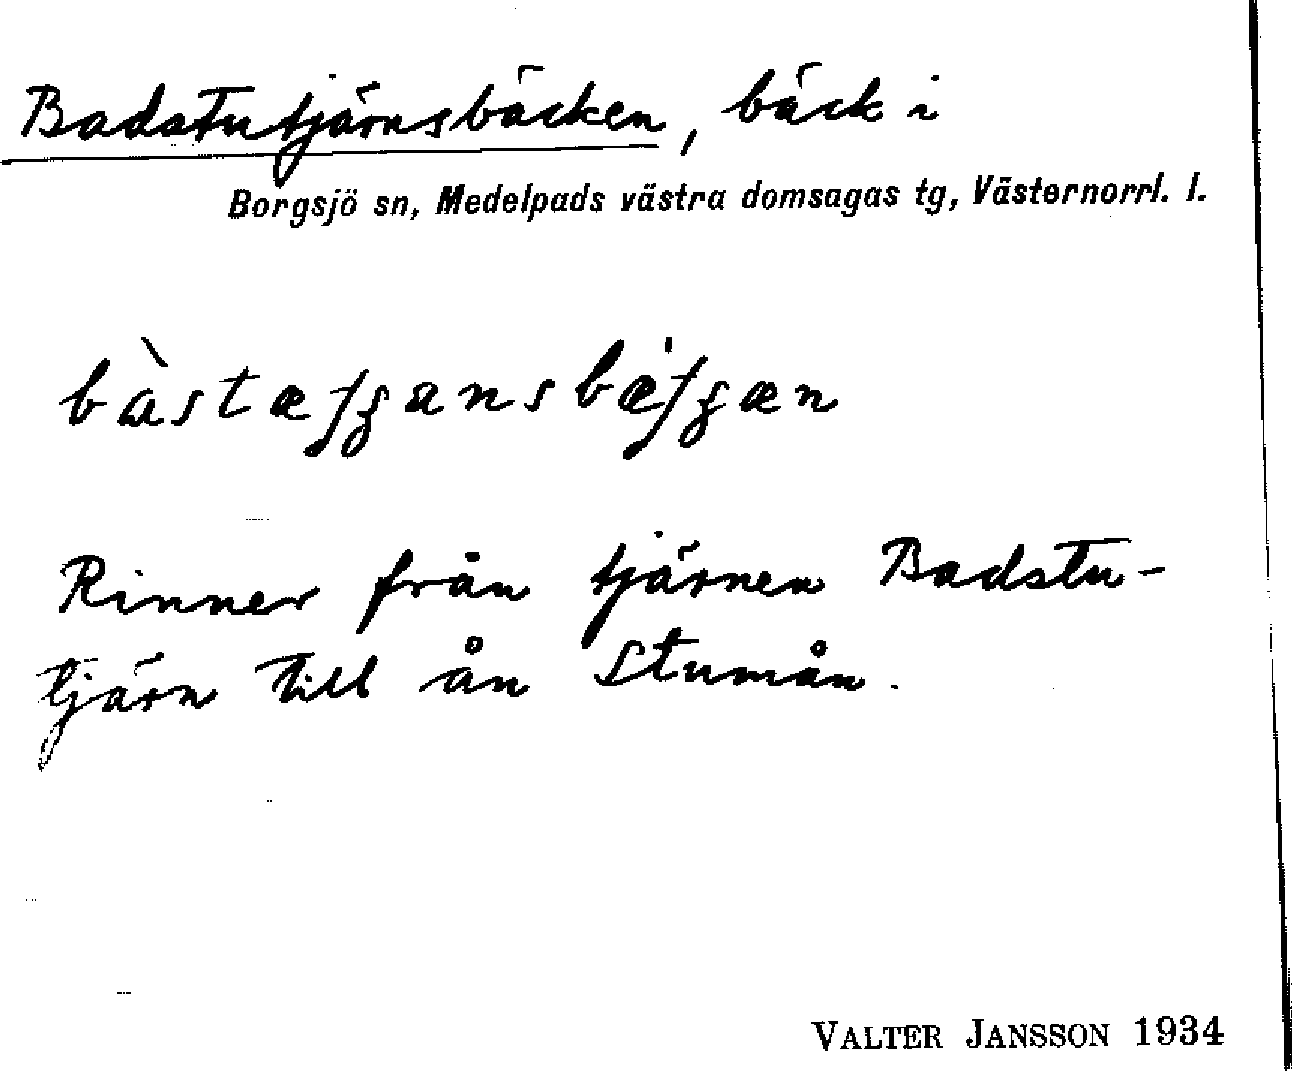 Badstutjärnsbäcken, bäck i
Borgsjö sn, Medelpads västra domsagas tg, Västernorrl. l.
Rinner från tjärnen Badstu-
tjärn till ån Stumån.
VALTER JANSSON 1934